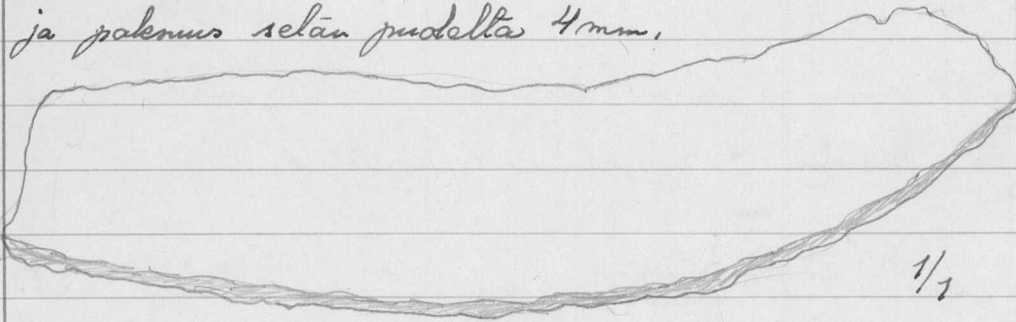 ja paksuus selän puolelta 4 mm.
1/1